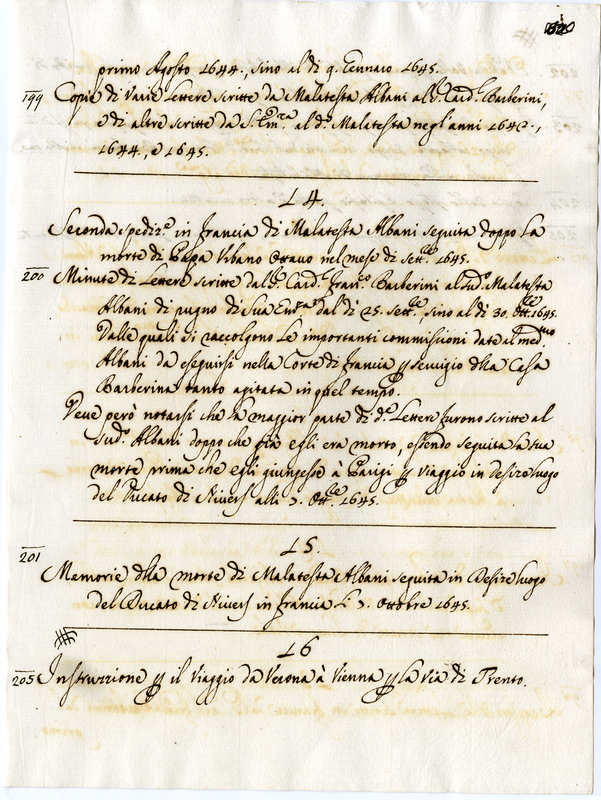 primo Agosto 1644., sino al dì 9. Gennaio 1645.
199 Copie di varie Lettere scritte da Malatesta Albani al S.r Card.l Barberini,
e di altre scritte da S. Em.za al d.o Malatesta negl'anni 1640.,
1644., e 1645.
14.
Seconda spediz.e in Francia di Malatesta Albani seguita doppo la
morte di Papa Urbano Ottavo nel mese di Sett.bre 1645.
200 Minute di Lettere scritte dal S.r Card.l Fran.co Barberini al sud.o Malatesta
Albani di pugno di Sua Em.za dal dì 25. Sett.bre, sino al dì 30. Ott.bre 1645.
Dalle quali si raccolgono le importanti commissioni date al med.mo
Albani da eseguirsi nella Corte di Francia p servizio dlla Casa
Barberina tanto agitata in quel tempo.
Deve però notarsi che la maggior parte di d.e Lettere furono scritte al
Sud.o Albani doppo che già egli era morto, essendo seguita la sua
morte prima che egli giungesse à Parigi p viaggio in Desize luogo
del Ducato di Nivers alli 7. Ott.bre 1645.
15.
201 Memorie dlla morte di Malatesta Albani seguita in Desize luogo
del Ducato di Nivers in Francia li 7. Ottobre 1645.
16
205 Instruzzione p il Viaggio da Verona à Vienna p la via di Trento.